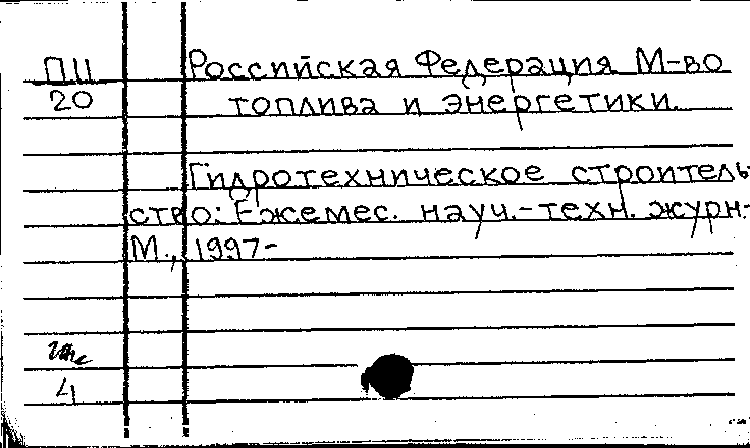 П11 Российская Федерация М-во
20 топлива и энергетики.
Гидротехническое строитель-
ство: Ежемес. науч.-техн. журн.-
М., 1997-
4